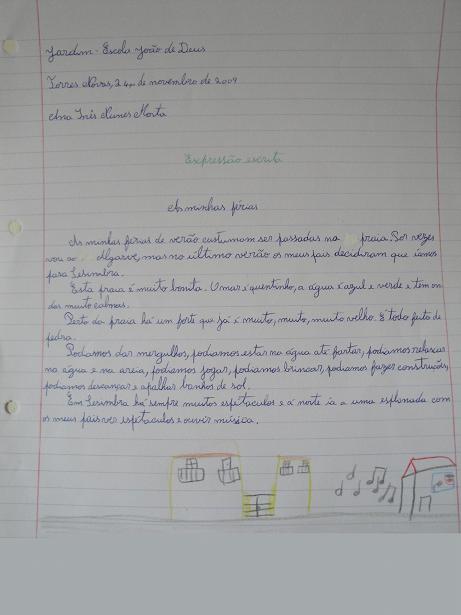 Jardim-Escola João de Deus
Torres Novas, 24, de novembro de 2009
Ana Inês Nunes Morta
Expressão escrita
As minhas férias
As minhas férias de verão custumam ser passadas na praia. Por vezes
vou ao Algarve, mas no último verão os meus pais decidiram que íamos
para Sesimbra.
Esta praia é muito bonita. O mar é quentinho, a água é azul e verde e tem on
das muito calmas.
Perto da praia há um forte que já é muito, muito, muito velho. É todo feito de
pedra.
Podiamos dar mergulhos, podiamos estar na água até fartar, podiamos relaxar
na água e na areia, podiamos jogar, podiamos brincar, podiamos fazer construções,
podiamos descançar e apalhar banhos de sol.
Em Sesimbra há sempre muitos espetaculos e á noite ia a uma esplanada com
os meus pais ver espetaculos e ouvir música.